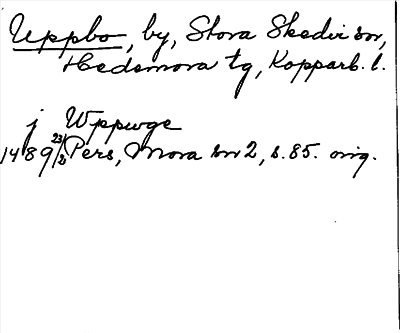 Uppbo, by, Stora Skedvi sn,
Hedemora tg, Kopparb. l.
j Wppwge
1489 23/2 Pers, Mora sn 2, s. 85. orig.